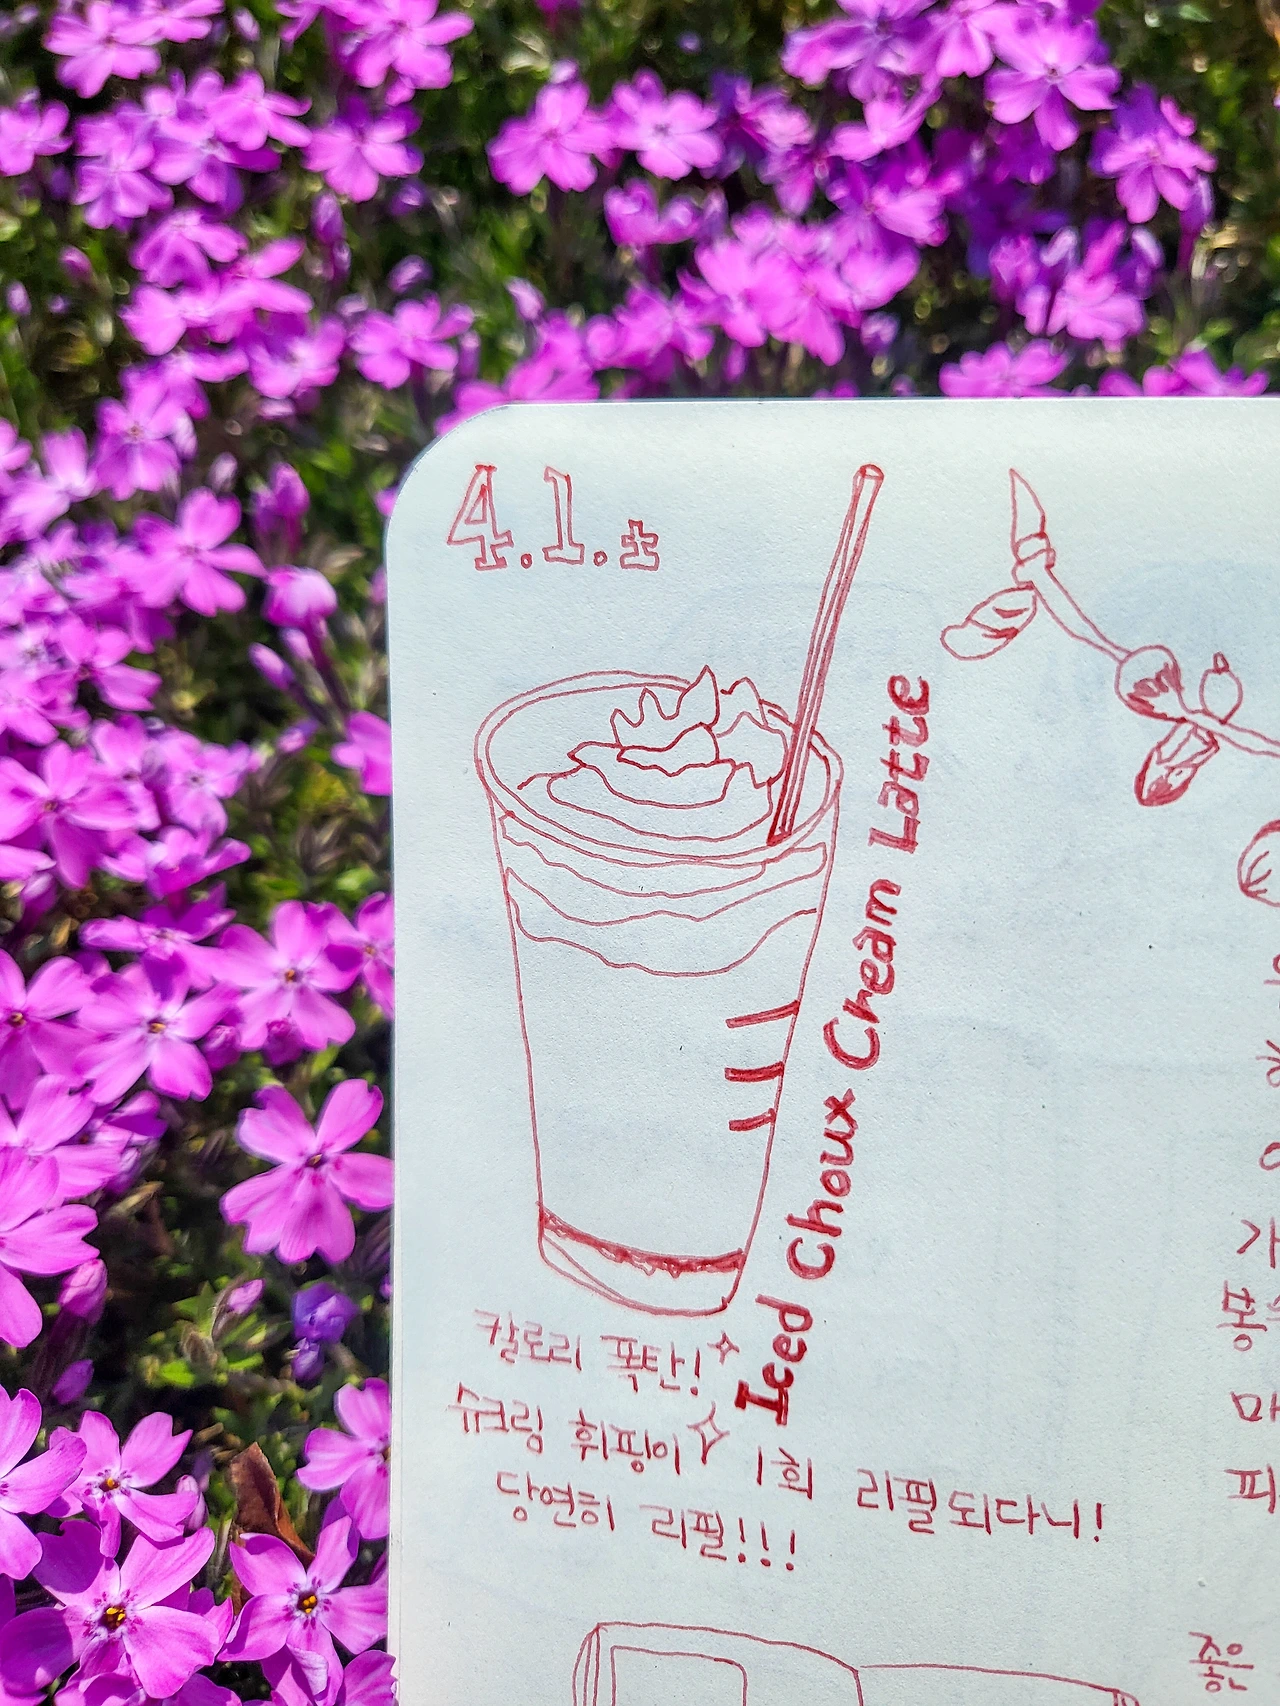 4.1.토
Iced Choux Cream Latte
칼로리 폭탄!
슈크림 휘핑이 1회 리필되다니!
당연히 리필!!!
가
퐁
마
피
좋은